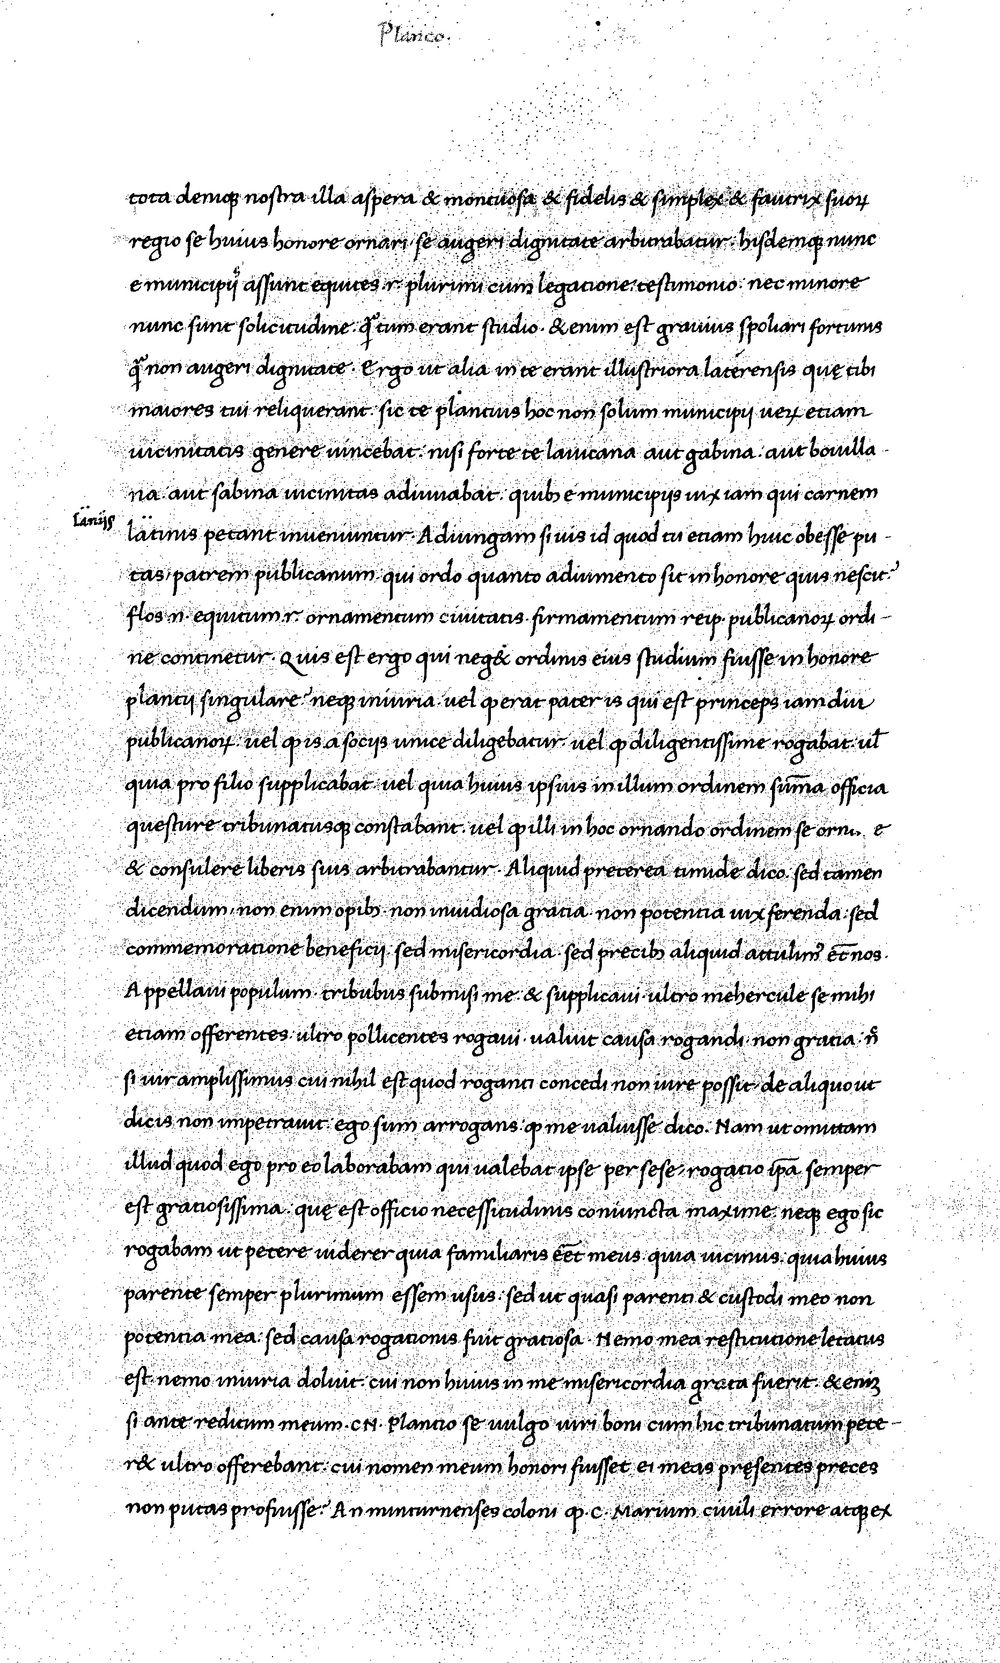 Planco.
tota deniqꝫ nostra illa aspera & montuosa & fidelis & simplex & fautrix suoꝝ
regio se huius honore ornari se augeri dignitate arbitrabatur. hisdemqꝫ nunc
e municipij assunt equites .r. plurimi cum legatione. testimonio. nec minore
nunc sunt solicitudine. q̃ tum erant studio. & enim est grauius spoliari fortunis
q̃ non augeri dignitate. Ergo ut alia in te erant illustriora laterensis quę tibi
maiores tui reliquerant. sic te plantius hoc non solum municipij ueꝝ etiam
uicinitatis genere uincebat. nisi forte te lauicana aut gabina. aut bouilla-
na. aut sabina uicinitas adiuuabat. quibꝫ e municipijs uix iam qui carnem
laniis
latinis petant inueniuntur. Adiungam si uis id quod tu etiam huic obesse pu-
tas, patrem publicanum. qui ordo quanto adiumento sit in honore quis nescit?
flos .n. equitum .r. ornamentum ciuitatis. firmamentum reip. publicanoꝝ ordi-
ne continetur. Quis est ergo qui neg& ordinis eius studium fuisse in honore
plantij singulare? neqꝫ iniuria. uel ꝙ erat pater is qui est princeps iam diu
publicanoꝝ. uel ꝙ is a socijs unice diligebatur. uel ꝙ diligentissime rogabat. ul̄
quia pro filio supplicabat. uel quia huius ipsius in illum ordinem sum̄a officia
questure tribunatusqꝫ constabant. uel ꝙ illi in hoc ornando ordinem se
& consulere liberis suis arbitrabantur. Aliquid preterea timide dico. sed tamen
dicendum, non enim opibꝫ. non inuidiosa gratia. non potentia uix ferenda. sed
commemoratione beneficij. sed misericordia. sed precibꝫ aliquid attulimꝰ et̄ nos.
Appellaui populum. tribubus submisi me. & supplicaui. ultro mehercule se mihi
etiam offerentes. ultro pollicentes rogaui. ualuit causa rogandi. non gratia. n̄
si uir amplissimus cui nihil est quod roganti concedi non iure possit. de aliquo ut
dicis non impetrauit. ego sum arrogans. ꝙ me ualuisse dico. Nam ut omittam
illud quod ego pro eo laborabam qui ualebat ipse per sese, rogatio ip̄a semper
est gratiosissima. quę est officio necessitudinis coniuncta maxime. neqꝫ ego sic
rogabam ut petere uiderer quia familiaris eēt meus. quia uicinus. quia huius
parente semper plurimum essem usus. sed ut quasi parenti & custodi meo non
potentia mea. sed causa rogationis fuit gratiosa. Nemo mea restitutione letatus
est. nemo iniuria doluit. cui non huius in me misericordia grata fuerit. & eniꝫ
si ante reditum meum .CN. Plantio se uulgo uiri boni cum hic tribunatum pete-
r& ultro offerebant. cui nomen meum honori fuisset ei meas pręsentes preces
non putas profuisse? An minturnenses coloni ꝙ .C. Marium ciuili errore atqꝫ ex